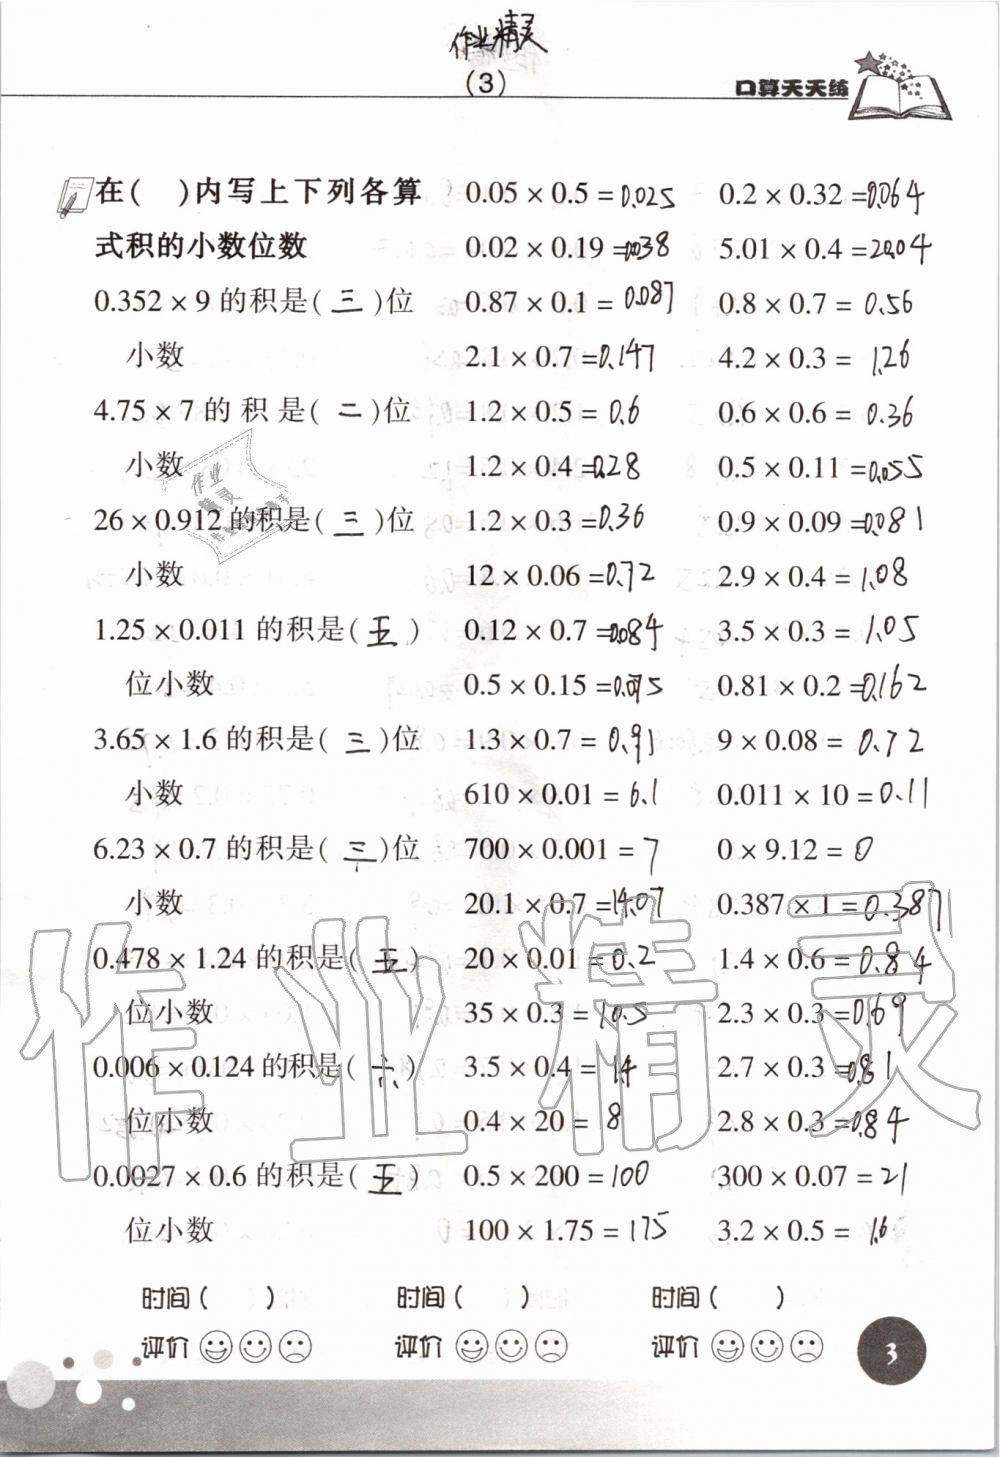 作业精灵
(3)
口算天天练
在(　)内写上下列各算
式积的小数位数
0.352 × 9 的积是( 三 )位
小数
4.75 × 7 的积是( 二 )位
小数
26 × 0.912 的积是( 三 )位
小数
1.25 × 0.011 的积是( 五 )
位小数
3.65 × 1.6 的积是( 三 )位
小数
6.23 × 0.7 的积是( 三 )位
小数
0.478 × 1.24 的积是( 五 )
位小数
0.006 × 0.124 的积是( 六 )
位小数
0.0027 × 0.6 的积是( 五 )
位小数
0.05 × 0.5 = 0.025
0.02 × 0.19 = 0.038
0.87 × 0.1 = 0.087
2.1 × 0.7 = 0.147
1.2 × 0.5 = 0.6
1.2 × 0.4 = 0.28
1.2 × 0.3 = 0.36
12 × 0.06 = 0.72
0.12 × 0.7 = 0.084
0.5 × 0.15 = 0.075
1.3 × 0.7 = 0.91
610 × 0.01 = 6.1
700 × 0.001 = 7
20.1 × 0.7 = 14.07
20 × 0.01 = 0.2
35 × 0.3 = 10.5
3.5 × 0.4 = 1.4
0.4 × 20 = 8
0.5 × 200 = 100
100 × 1.75 = 175
0.2 × 0.32 = 0.064
5.01 × 0.4 = 2.004
0.8 × 0.7 = 0.56
4.2 × 0.3 = 1.26
0.6 × 0.6 = 0.36
0.5 × 0.11 = 0.055
0.9 × 0.09 = 0.081
2.9 × 0.4 = 1.08
3.5 × 0.3 = 1.05
0.81 × 0.2 = 0.162
9 × 0.08 = 0.72
0.011 × 10 = 0.11
0 × 9.12 = 0
0.387 × 1 = 0.387
1.4 × 0.6 = 0.84
2.3 × 0.3 = 0.69
2.7 × 0.3 = 0.81
2.8 × 0.3 = 0.84
300 × 0.07 = 21
3.2 × 0.5 = 1.6
时间(　　)
评价
时间(　　)
评价
时间(　　)
评价
3
作业精灵